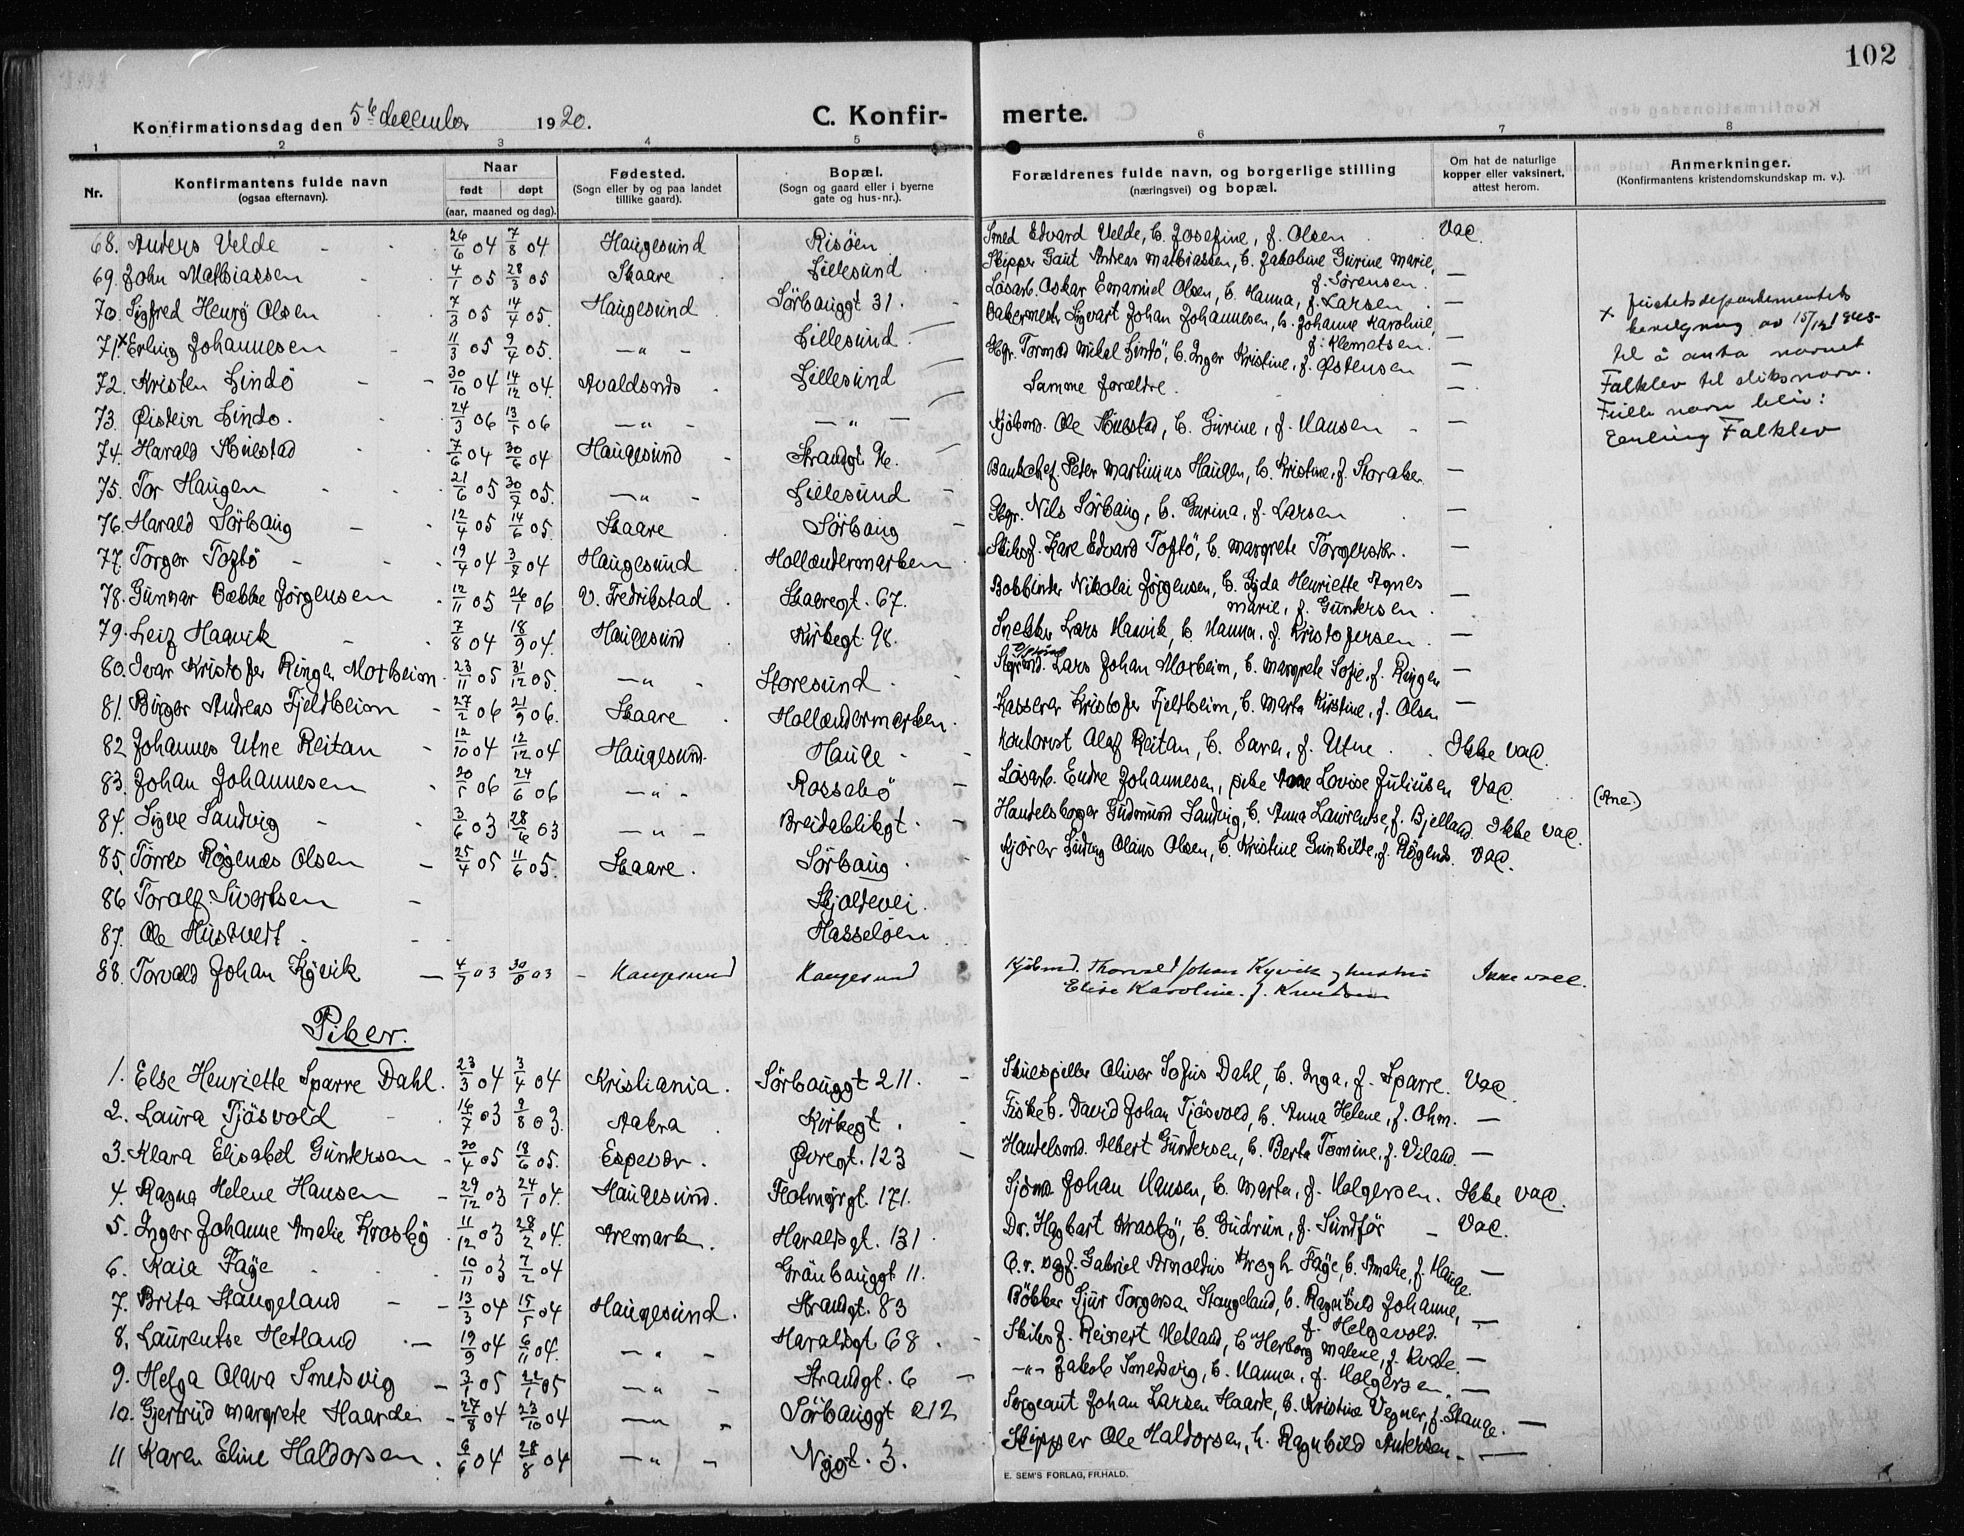 102
Konfirmationsdag den 5te december 1920. C. Konfirmerte.
1 2 3 4 5 6 7 8
Nr. Konfirmantens fulde navn (ogsaa efternavn). Naar født døpt (aar, maaned og dag). Fødested. (Sogn eller by og paa landet tillike gaard). Bopæl. (Sogn og gaard eller i byerne gate og hus-nr.). Forældrenes fulde navn, og borgerlige stilling (næringsvei) og bopæl. Om hat de naturlige kopper eller vaksinert, attest herom. Anmerkninger. (Konfirmantens kristendomskundskap m. v.).
68. Anders Velde 26/6 04 7/8 04 Haugesund Risöen Smed Edvard Velde, h. Josefine, f. Olsen Vac.
69. John Mathiassen 4/1 05 28/3 05 Skaare Lillesund Skipper Gaut Andreas Mathiassen, h. Jakobine Gurine Marie, f. Sörensen. —
70. Sigfred Henry Olsen 7/3 05 14/4 05. Haugesund Sörhauggt 31. Lösarb. Oskar Emanuel Olsen, h. Hanna, f. Larsen —
71. x Erling Johannesen 11/3 05 9/4 05. — " — Lillesund Bakermester Sigvart Johan Johannesen, h. Johanne Karoline, f. Klemetsen. —
x Justisdepartementets
bevilgning av 15/12 1925
til å anta navnet
Falklev til
Fulle navn bliv:
Erling Falklev
72. Kristen Lindö 30/10 04 14/12 04. Avaldsnes Lillesund Tormod Mikal Lindö, h. Inger Kristine, f. Östensen —
73. Øistein Lindö. 24/3 06 13/5 06 — " — — " — Samme forældre. —
74. Harald 7/6 04 30/6 04 Haugesund Strandgt. Kjöbmd. Ole h. Gurine, f. Hansen —
75. Tor Haugen 21/6 05 30/7 05. — " — Lillesund Bankchef. Peter Martinius Haugen, h. Kristine, f. —
76. Harald Sörhaug 12/4 05 14/6 05 Skaare Sörhaug Nils Sörhaug, h. Gurina, f. Larsen —
77. Torger Toftö 19/4 04 3/7 04 Haugesund Hollændermarken Skibsf. Kare Edvard Toftö, h. Margrete Torgersdtr. —
78. Gunnar Bække Jörgensen 12/11 05 26/1 06 V. Fredrikstad Skaaregt. 67. Bokbinder Nikolai Jörgensen, h. Gyda Henriette Agnes Marie, f. Gundersen —
79. Leif Haavik 7/8 04 18/9 04. Haugesund Kirkegt. 98. Snekker Lars Haavik, h. Hanna, f. Kristofersen —
80. Ivar Kristofer Ringen Motheim 23/11 05 31/12 05. — " — Storesund Lars Johan Motheim, h. Margrete Sofie, f. Ringen
81. Birger Andreas Fjeldheim 27/2 06 21/9 06. Skaare Hollændermarken. Kasserer Kristofer Fjeldheim, h. Marta Kirstine, f. Olsen —
82 Johannes Utne Reitan 12/10 04 12/12 04 Haugesund. Hauge Kontorist Olaf Reitan, h. Sara, f. Utne. Ikke vac.
83. Johan Johannesen 20/5 06 24/6 06 — " — Rossabö Lösarb. Endre Johannesen, pike Ane Lovise Juliusen Vac. (Ane.)
84. Sigve Sandvig 3/6 03 28/6 03 — " — Breidablikgt. Handelsborger Gudmund Sandvig, h. Anna Laurense, f. Bjelland. Ikke vac.
85. Törres Rögenæs Olsen 25/4 05 11/6 05. Skaare. Sörhaug Kjörer Ludvig Olaus Olsen, h. Kristine Gunhilde, f. Rögenes. Vac.
86 Toralf Sivertsen Skjoldevei.
87. Ole Hustvedt Hasselöen
88. Torvald Johan Kyvik 4/7 03 30/8 03 Haugesund Haugesund Kjöbmd. Thorvald Johan Kyvik og hustru Elise Karoline, f. Knudsen Ikke vacc.
Piker.
1. Else Henriette Sparre Dahl. 23/3 04 3/4 04 Kristiania. Sörhauggt 211. Skuespiller Oliver Sofus Dahl, h. Inga, f. Sparre. Vac.
2. Laura Tjösvold 16/7 03 9/8 03. Aakra Kirkegt. Fiskeh. David Johan Tjösvold, h. Anna Helene, f. Ohm. —
3. Klara Elisabet Gundersen 20/4 05 18/6 05. Espevær. Øvregt. 123 Handelsmd. Albert Gundersen, h. Berta Tomine, f. Viland. —
4. Ragna Helene Hansen 29/12 03 24/1 04. Haugesund. Flotmyrgt. 171. Sjömd Johan Hansen, h. Marta, f. Holgersen. Ikke vac.
5. Inger Johanne Amalie Krosby 11/12 03 28/2 04. Aremark. Haraldsgt. 131 Dr. Hagbart Krosby, h. Gudrun, f. Sundför Vac.
6. Kaia Fæye 10/11 03 7/2 04 Grönhauggt 11. O.r. sagf. Gabriel Arnoldus Krogh Fæye, h. Amalie, f. Hauge. —
7. Brita Stangeland 13/3 04 15/5 04 Haugesund. Strandgt. 83 Bökker Sjur Torgersen Stangeland, h. Ragnhild Johanne, f. Helgevold. —
8. Laurentse Hetland 19/9 04 6/11 04. — " — Haraldsgt 68 Skibsf. Reinert Hetland, h. Herborg Malene, f. Kvale. —
9. Helga Olava Smedsvig 3/1 05 22/1 05 — " — Strandgt. 6 — " — Jakob Smedsvig, h. Hanna, f. Holgersen. —
10. Gjertrud Margrete Haarde 27/8 04 23/10 04 — " — Sörhauggt 212 Sergeant Johan Larsen Haarde, h. Kristine Vegner, f. Stange. —
11 Karen Eline Haldorsen. 6/6 04 28/8 04 — " — Nygt. 3. Skipper Ole Haldorsen, h. Ragnhild Andersen. —
E. SEM'S FORLAG, FR.HALD.